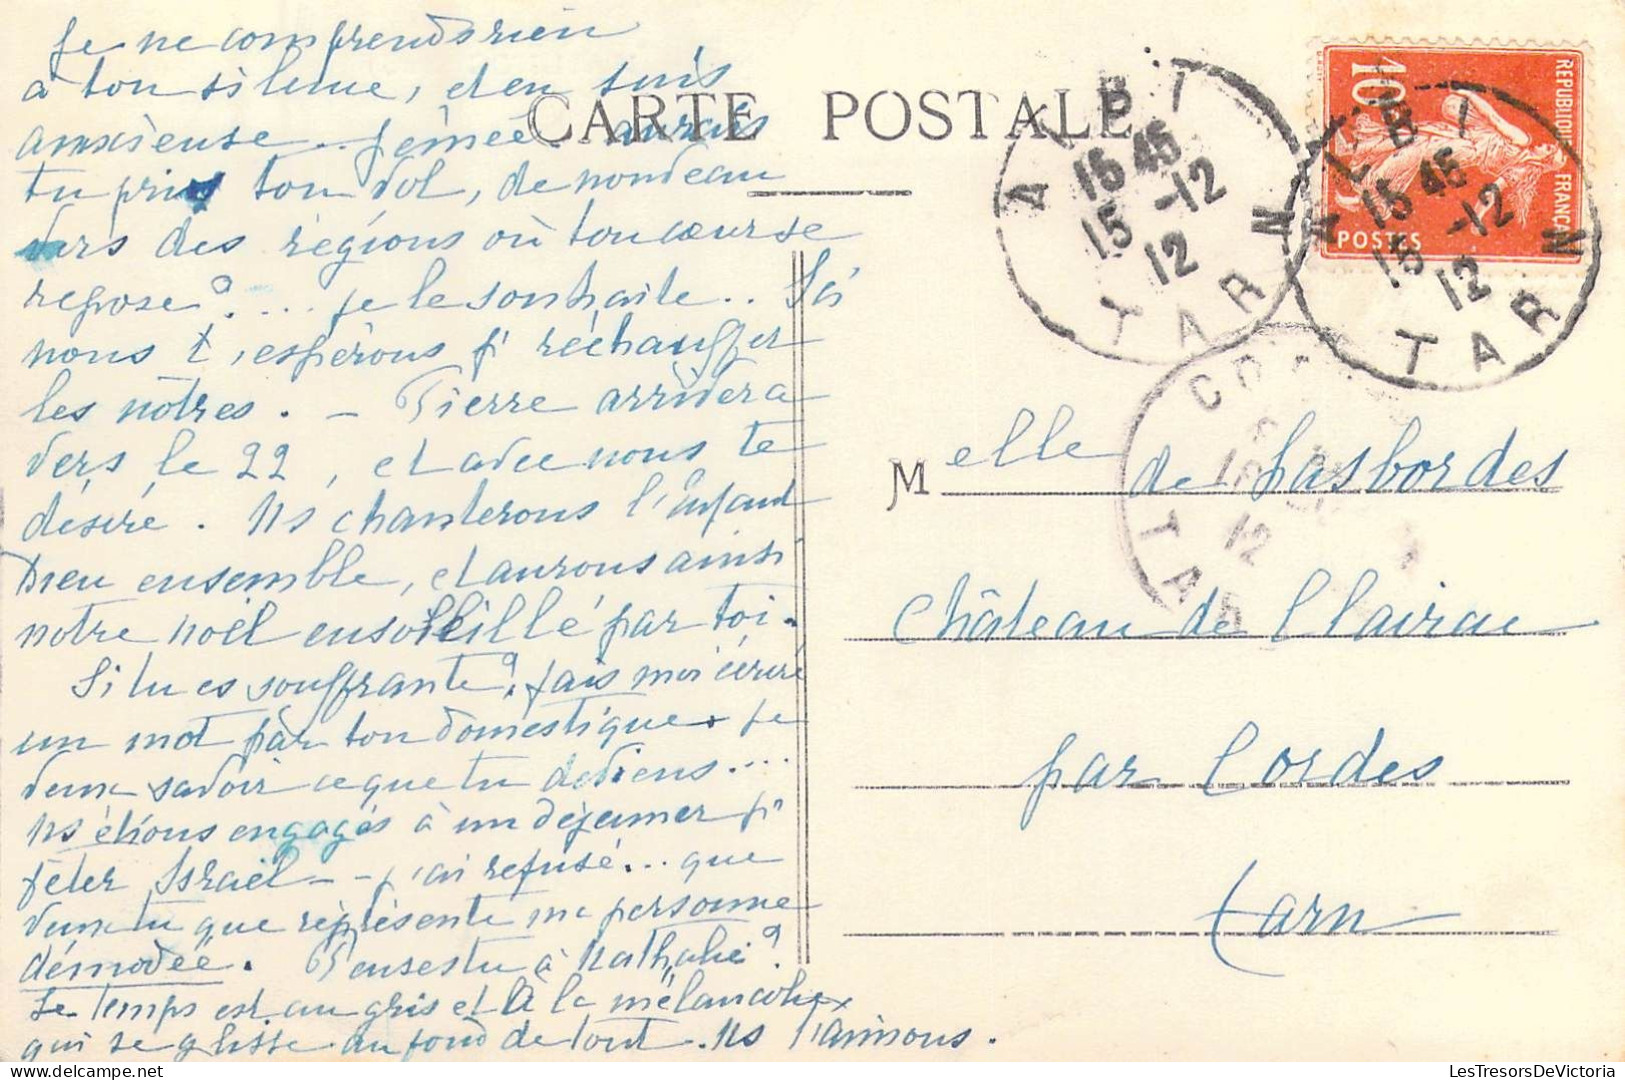 Je ne comprends rien
à ton silence, et en suis
anxieuse.. peinée. aurais
tu pris ton vol, de nouveau
vers des régions où ton cœur se
repose?.... je le souhaite.. Ici
nous t'espérons pr réchauffer
les nôtres. — Pierre arrivera
vers le 22, et avec nous te
désire. Ns chanterons l'Enfant
Dieu ensemble, et aurons ainsi
notre noël ensoleillé par toi.
Si tu es souffrante?, fais moi écrire
un mot par ton domestique. je
veux savoir ce que tu deviens....
Ns étions engagés à un déjeuner pr
fêter Israël -- j'ai refusé... que
veux tu que représente ma personne
démodée. Penses tu à Nathalie?
Le temps est au gris et à la mélancolie
qui se glisse au fond de tout. Ns t'aimons.
CARTE POSTALE
ALBI
15 45
15 -12
12
TARN
REPUBLIQUE FRANÇAISE
10
POSTES
ALBI
15 45
15 -12
12
TARN
COR
12
TAR
Melle de Lasbordes
Château de Clairac
par Cordes
Tarn
LesTresorsDeVictoria